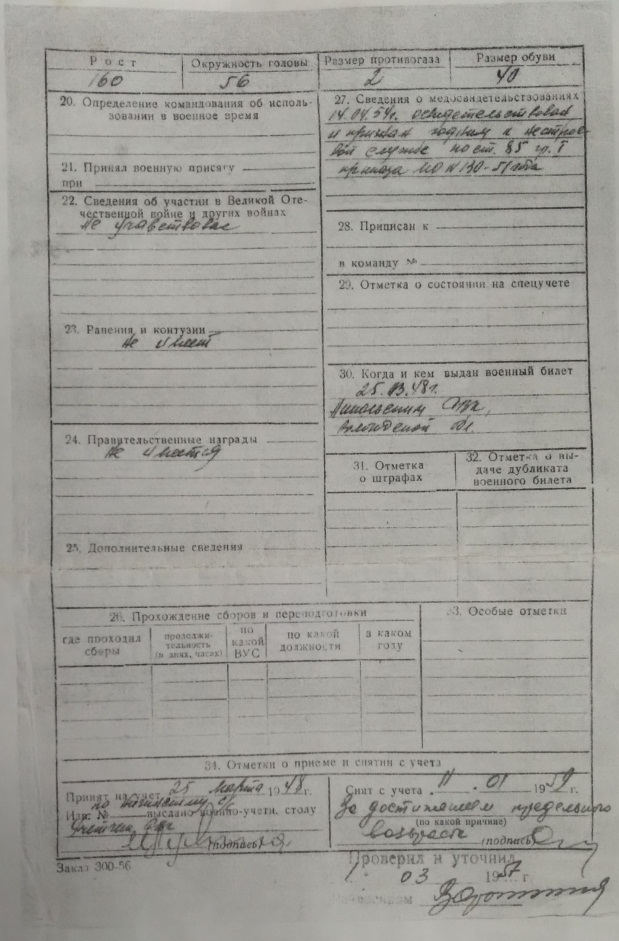 Рост Окружность головы Размер противогаза Размер обуви
160 56 2 40
20. Определение командования об исполь-
зовании в военное время
21. Принял военную присягу
при
22. Сведения об участии в Великой Оте-
чественной войне и других войнах
не участвовал
23. Ранения и контузии
не имеет
24. Правительственные награды
не имеется
25. Дополнительные сведения
27. Сведения о медосвидетельствованиях
14.04.54г. освидетельствован
и признан годным к нестрое-
вой службе по ст. 85 гр. I
приказа МО № 130-51 года
28. Приписан к
в команду №
29. Отметка о состоянии на спецучете
30. Когда и кем выдан военный билет
25.03.48г.
Никольским РВК,
Вологодской обл.
31. Отметка
о штрафах
32. Отметка о вы-
даче дубликата
военного билета
26. Прохождение сборов и переподготовки
где проходил
сборы
продолжи-
тельность
(в днях, часах)
по
какой
ВУС
по какой
должности
в каком
году
33. Особые отметки
34. Отметки о приеме и снятии с учета
Принят на учет 25 Марта 1948 г.
по с/с
Изв. № выслано военно-учетн. столу
(подпись)
Снят с учета 11. 01 1959 г.
За достижением предельного
(по какой причине)
возраста
(подпись)
Заказ 300-56
Проверил и уточнил
1 03 1957 г.